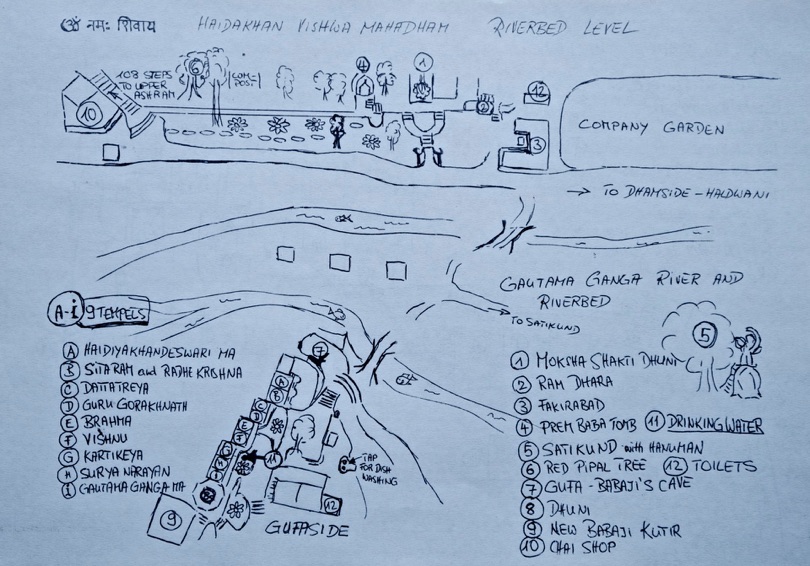 ॐ नमः शिवाय HAIDAKHAN VISHWA MAHADHAM RIVERBED LEVEL
108 STEPS
TO UPPER
ASHRAM
6
COM=
POST
4
1
2
12
10
3
COMPANY GARDEN
→ TO DHAMSIDE-HALDWANI
GAUTAMA GANGA RIVER AND
RIVERBED
TO SATIKUND
A-i 9 TEMPELS
A HAIDIYAKHANDESWARI MA
B SITARAM and RADHE KRISHNA
C DATTATREYA
D GURU GORAKHNATH
E BRAHMA
F VISHNU
G KARTIKEYA
H SURYA NARAYAN
i GAUTAMA GANGA MA
7
A
B
C
D
E
F
G
H
11
8
9
12
TAP
FOR DISH
WASHING
GUFASIDE
5
1 MOKSHA SHAKTI DHUNI
2 RAM DHARA
3 FAKIRABAD
4 PREM BABA TOMB 11 DRINKING WATER
5 SATIKUND with HANUMAN
6 RED PIPAL TREE 12 TOILETS
7 GUFA - BABAJI'S CAVE
8 DHUNI
9 NEW BABAJI KUTIR
10 CHAI SHOP